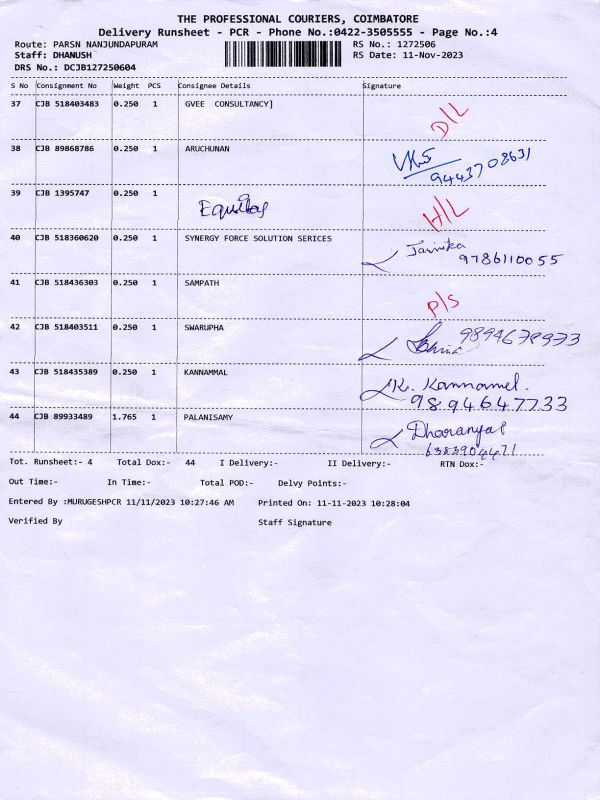 THE PROFESSIONAL COURIERS, COIMBATORE
Delivery Runsheet - PCR - Phone No.:0422-3505555 - Page No.:4
Route: PARSN NANJUNDAPURAM RS No.: 1272506
Staff: DHANUSH RS Date: 11-Nov-2023
DRS No.: DCJB127250604
S No Consignment No Weight PCS Consignee Details Signature
37 CJB 518403483 0.250 1 GVEE CONSULTANCY]
D/L
38 CJB 89868786 0.250 1 ARUCHUNAN
VKS
9443708631
39 CJB 1395747 0.250 1
Equitas
H/L
40 CJB 518360620 0.250 1 SYNERGY FORCE SOLUTION SERICES
9786110055
41 CJB 518436303 0.250 1 SAMPATH
P/S
42 CJB 518403511 0.250 1 SWARUPHA
43 CJB 518435389 0.250 1 KANNAMMAL
K. Kannamel.
9894647733
44 CJB 89933489 1.765 1 PALANISAMY
Dharanya
Tot. Runsheet:- 4 Total Dox:- 44 I Delivery:- II Delivery:- RTN Dox:-
Out Time:- In Time:- Total POD:- Delvy Points:-
Entered By :MURUGESHPCR 11/11/2023 10:27:46 AM Printed On: 11-11-2023 10:28:04
Verified By Staff Signature